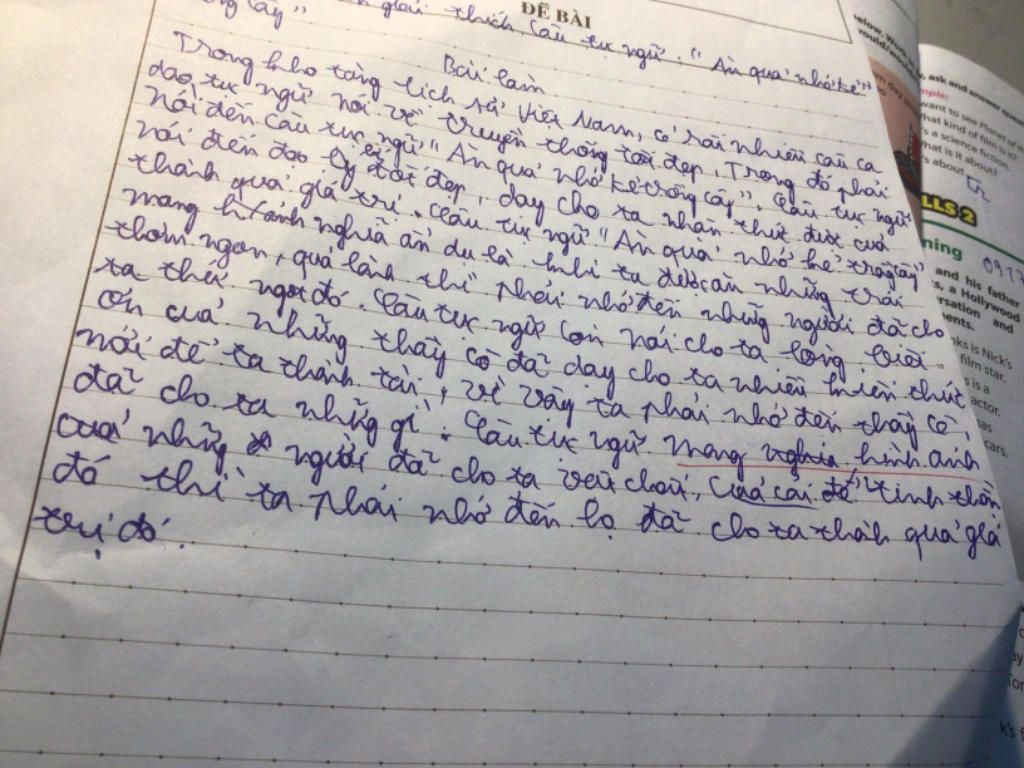 ĐỀ BÀI
giải thích câu tục ngữ: "Ăn quả nhớ kẻ
cây"
Bài làm
Trong kho tàng lịch sử Việt Nam, có rất nhiều câu ca
dao, tục ngữ nói về truyền thống tốt đẹp, Trong đó phải
nói đến câu tục ngữ "Ăn quả nhớ kẻ trồng cây". Câu tục ngữ
nói đến đạo lý tốt đẹp, dạy cho ta nhận thức được
thành quả giá trị. Câu tục ngữ "Ăn quả nhớ kẻ trồng cây"
mang nghĩa ẩn dụ là khi ta được ăn những trái
thơm ngon, quả lành thì phải nhớ đến những người đã cho
ta thứ ngọt đó. Câu tục ngữ còn nói cho ta lòng biết
ơn của những thầy cô đã dạy cho ta nhiều kiến thức
mới để ta thành tài, vì vậy ta phải nhớ đến thầy cô,
đã cho ta những gì. Câu tục ngữ mang nghĩa hình ảnh
của những người đã cho ta vật chất, của cải để, tinh thần
đó thì ta phải nhớ đến họ đã cho ta thành quả giá
trị đó.
elow. Work
would/wou
, ask and answer
mple:
want to see Planet of
hat kind of film is it?
s a science fiction
hat is it about?
s about
LLS 2
ning
and his father
s, a Hollywood
rsation and
ments.
ks is Nick's
film star.
s is a
actor.
as
cars.